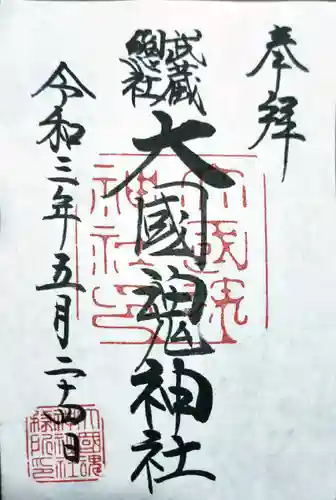 奉拝
武蔵
總社
大國魂神社
令和三年五月二十四日
大國魂
神社印
大國魂
神社